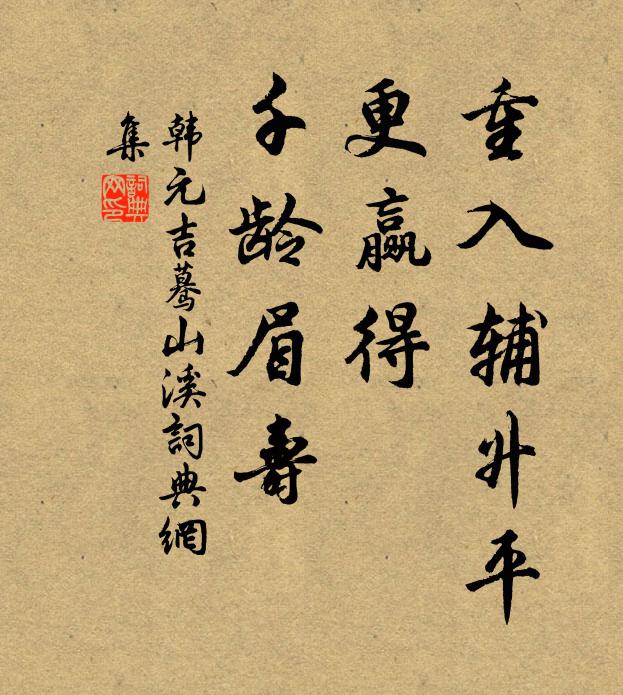 重入辅升平
更赢得
千龄眉寿
韩元吉蓦山溪词典網
集
詞典网印